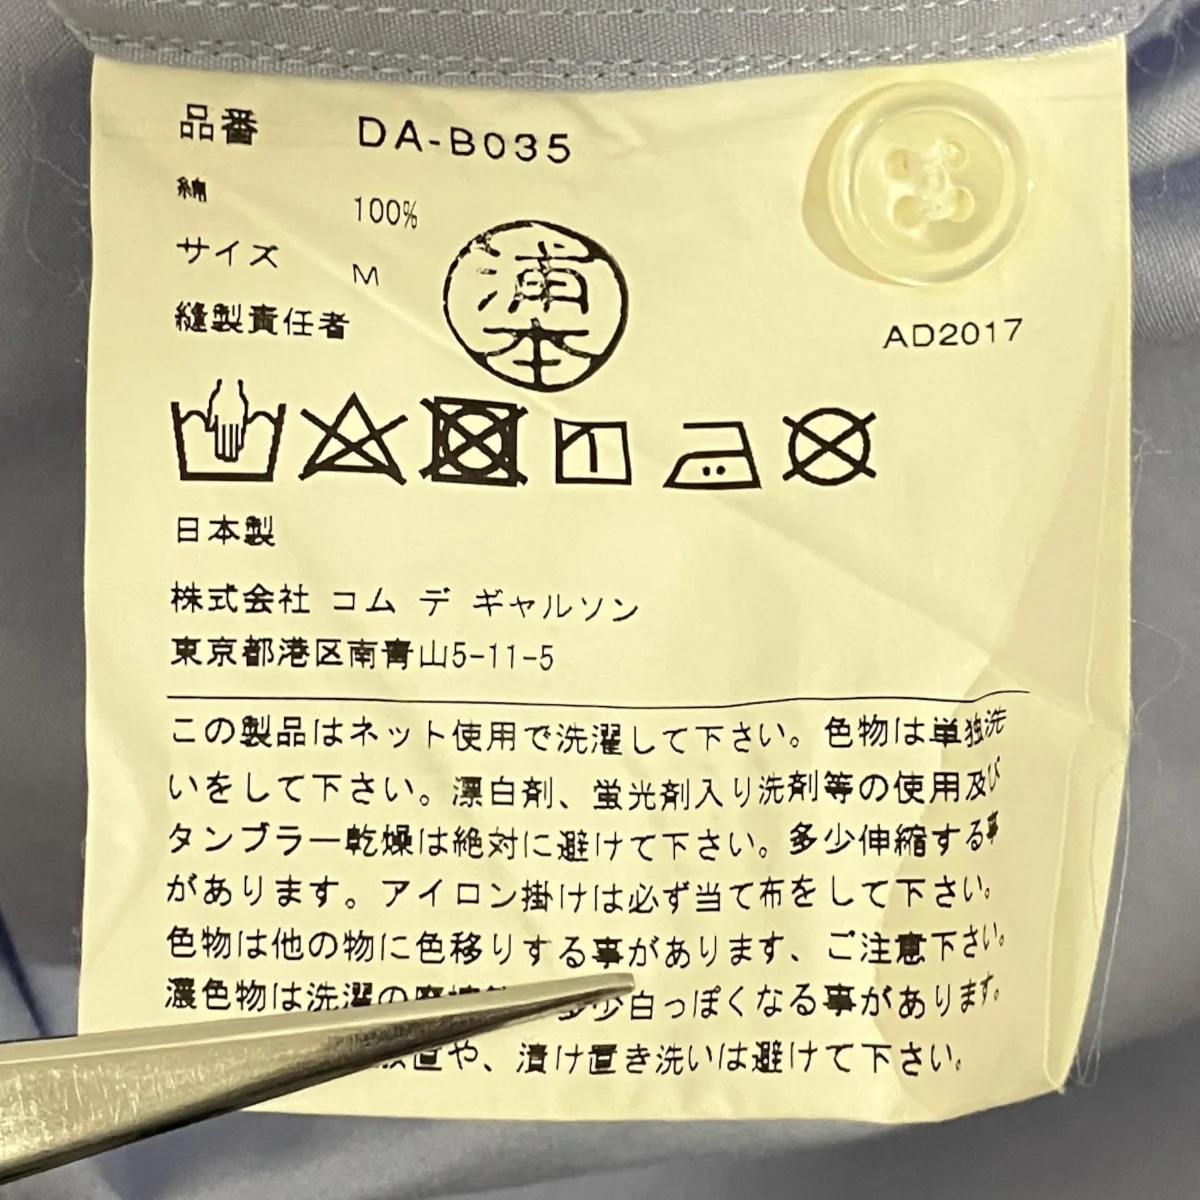 品番 DA-B035
綿 100%
サイズ M
縫製責任者
浦本
AD2017
日本製
株式会社 コム デ ギャルソン
東京都港区南青山5-11-5
この製品はネット使用で洗濯して下さい。色物は単独洗
いをして下さい。漂白剤、蛍光剤入り洗剤等の使用及び
タンブラー乾燥は絶対に避けて下さい。多少伸縮する事
があります。アイロン掛けは必ず当て布をして下さい。
色物は他の物に色移りする事があります、ご注意下さい。
濃色物は洗濯の 多少白っぽくなる事があります。
や、漬け置き洗いは避けて下さい。